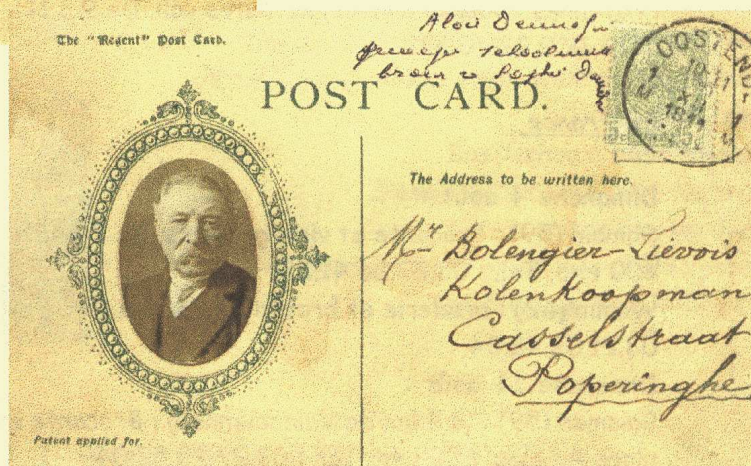 The "Regent" Post Card.
POST CARD.
OOSTENDE
10-11
XI
1911
The Address to be written here.
Mr Bolengier-Liévois
Kolenkoopman
Casselstraat
Poperinghe
Patent applied for.